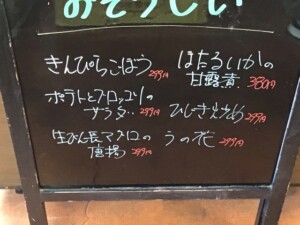 おそうじい
きんぴらごぼう 299円
ほたるいかの
甘露煮 380円
ポテトとブロッコリの
サラダ 299円
ひじき炒め 299円
生びん長マグロの
唐揚 299円
うの花 299円